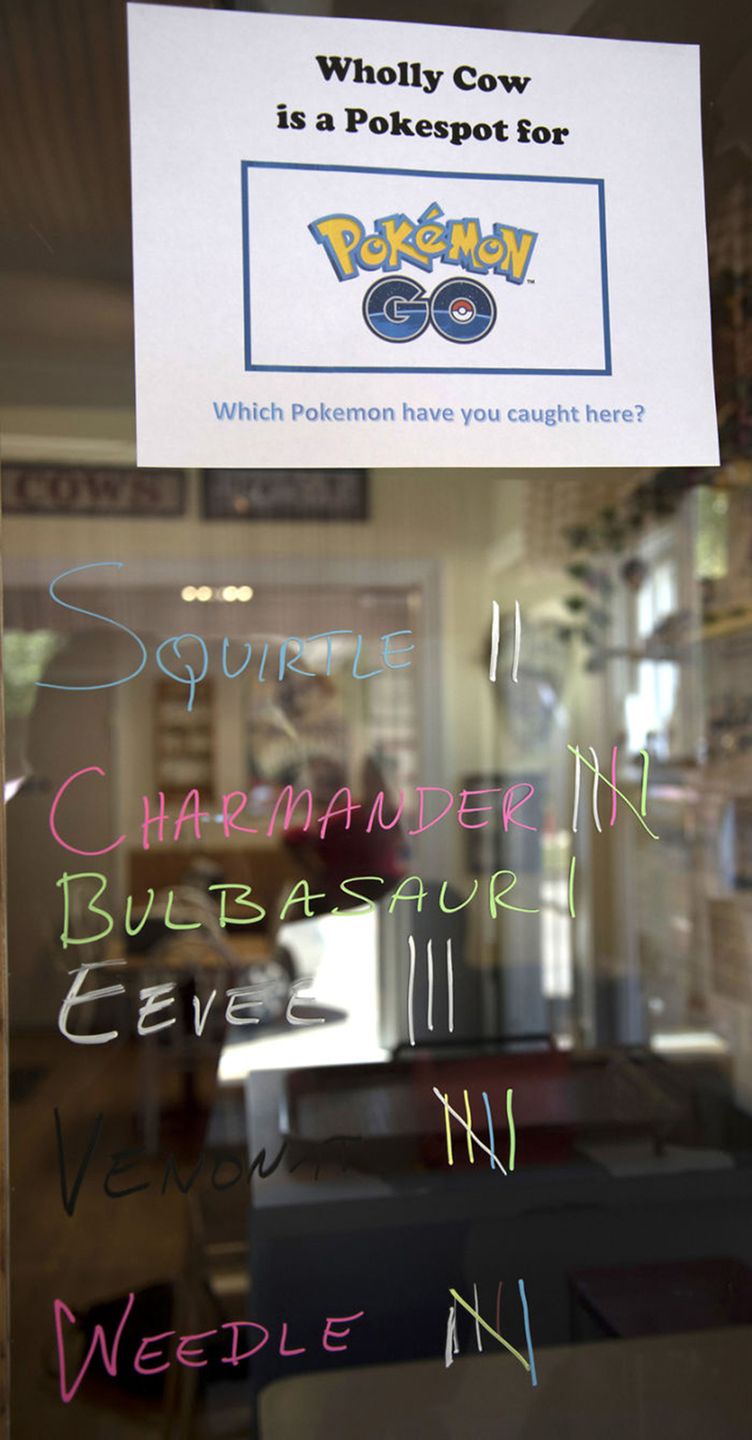 Wholly Cow
is a Pokespot for
POKéMON™
GO
Which Pokemon have you caught here?
COWS
SQUIRTLE ||
CHARMANDER 卌
BULBASAUR |
EEVEE |||
VENONAT 卌
WEEDLE 卌